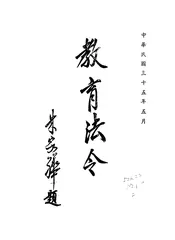 中華民國三十五年五月
教育法令
朱家驊題